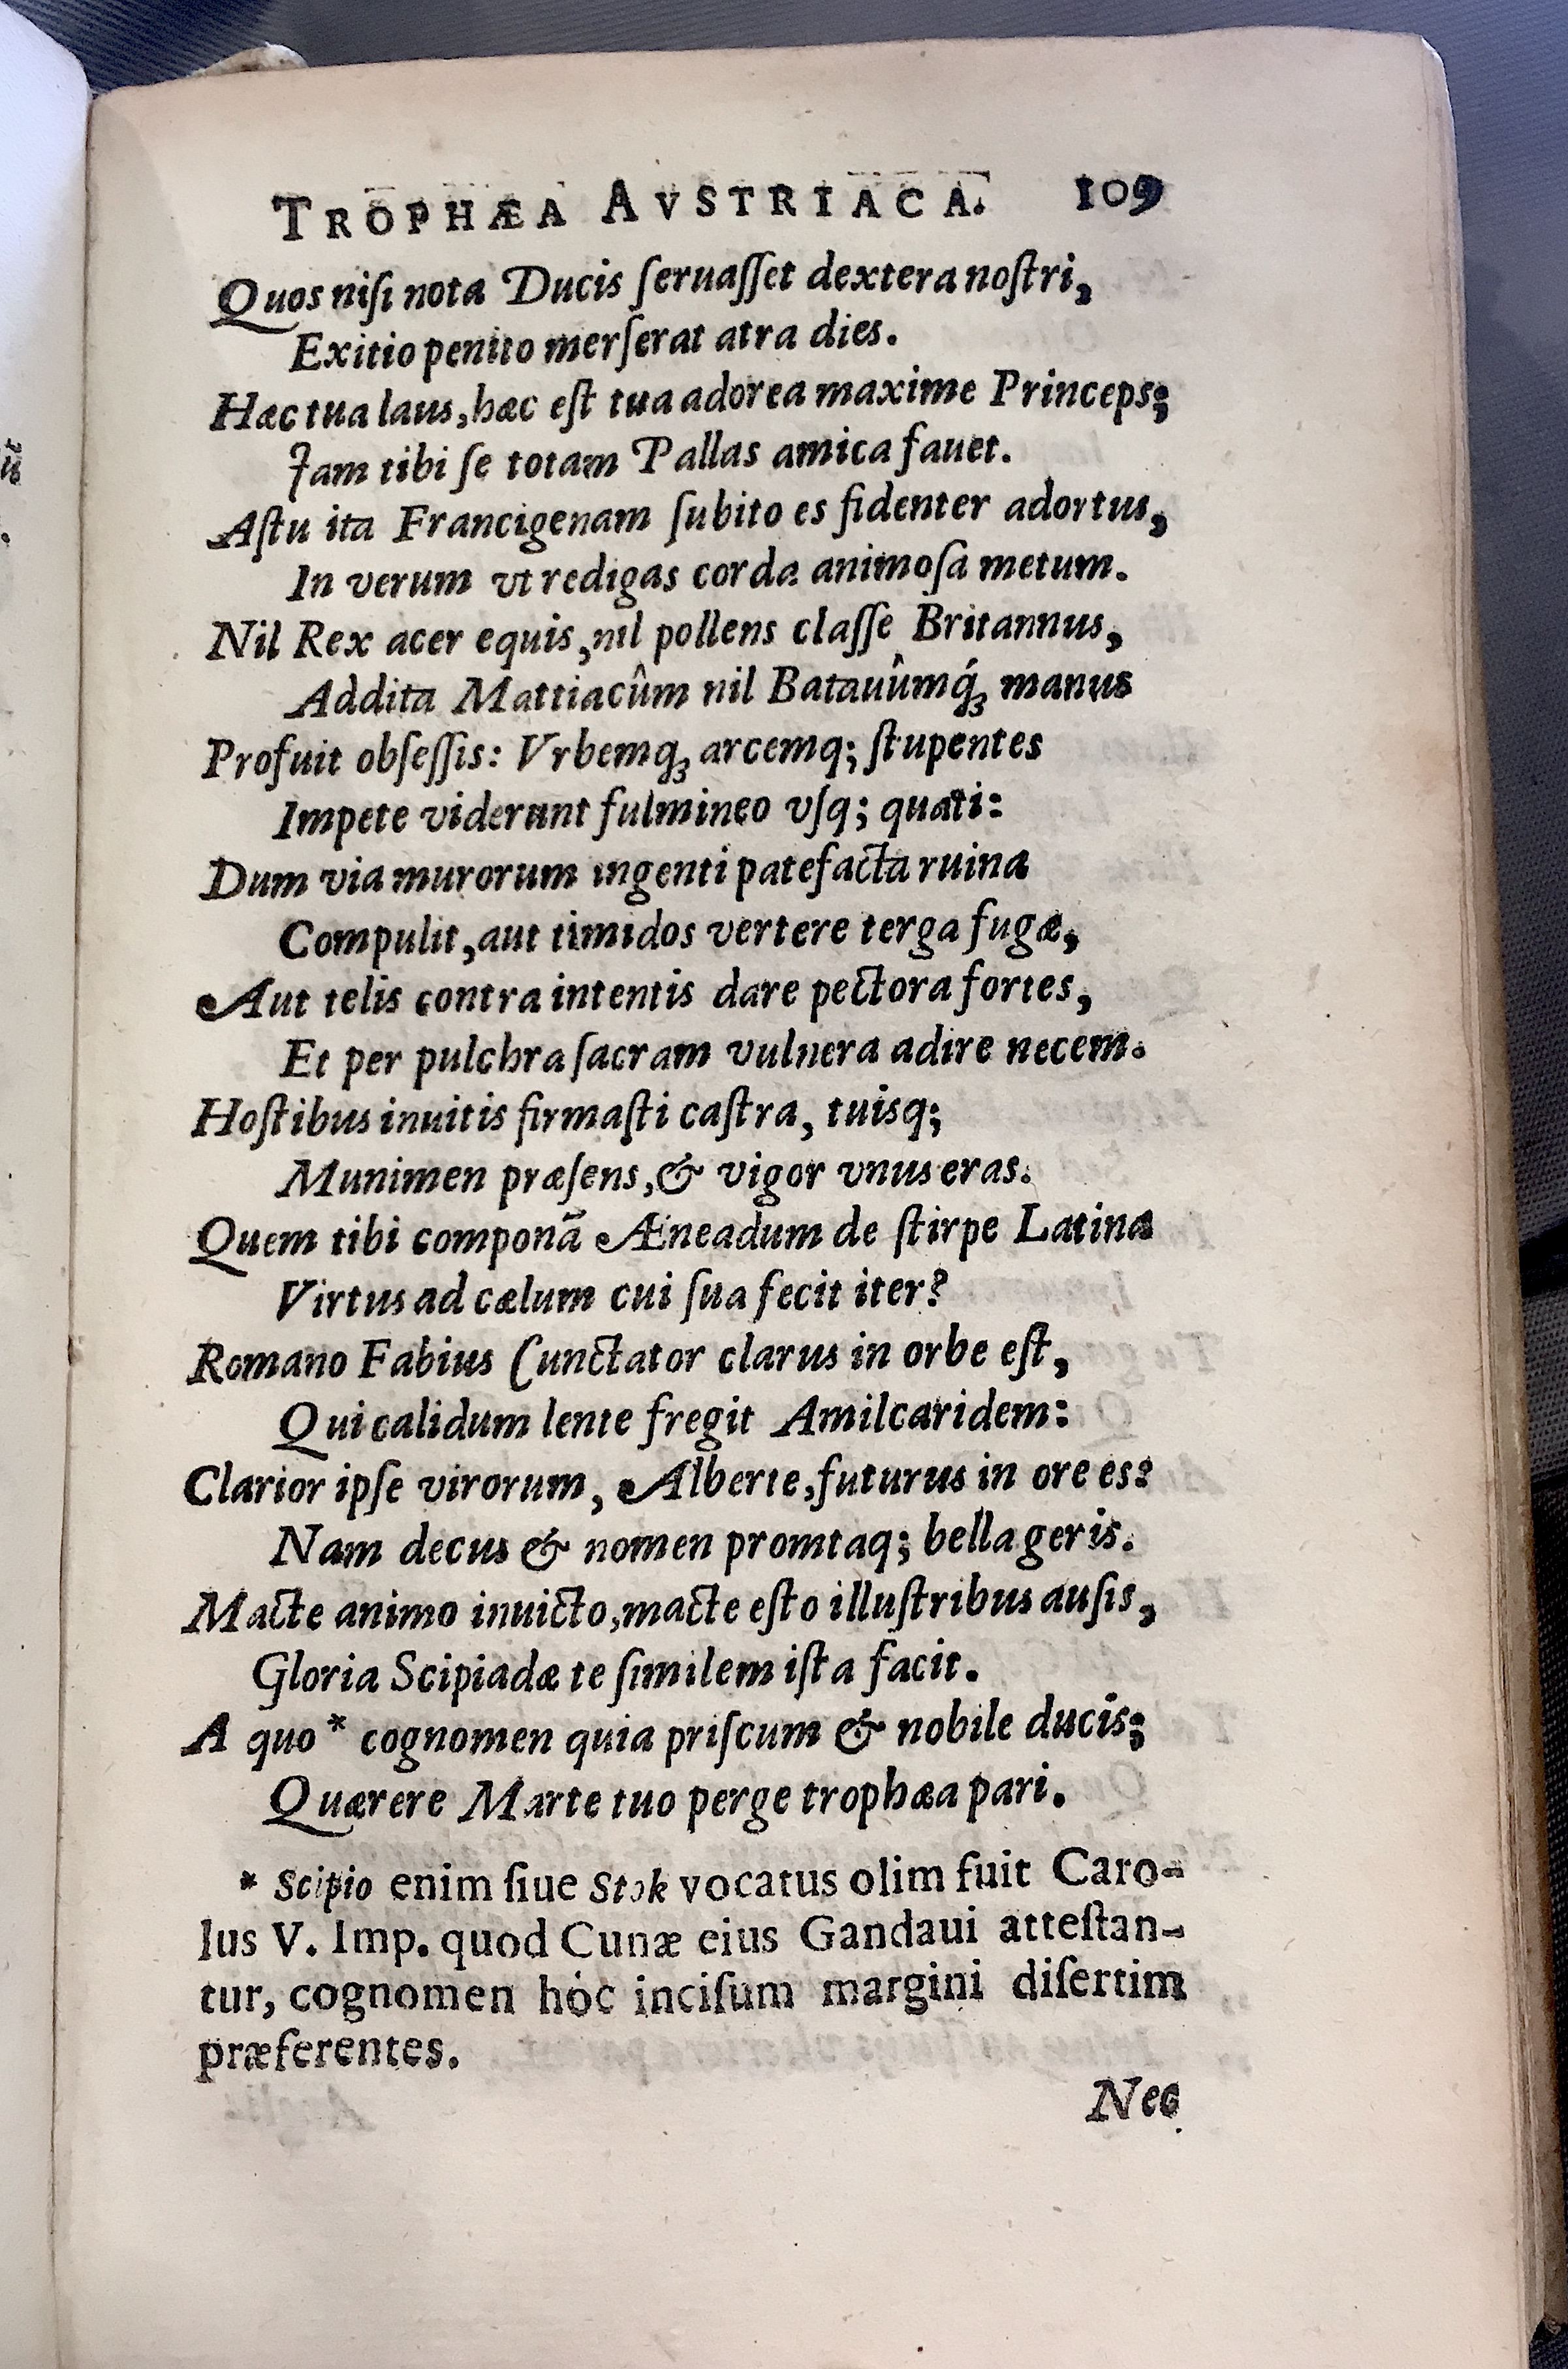 TROPHÆA AVSTRIACA. 109
Quos niſi nota Ducis ſeruaſſet dextera noſtri,
Exitio penito merſerat atra dies.
Hæc tua laus, hæc eſt tua adorea maxime Princeps;
Iam tibi ſe totam Pallas amica fauet.
Aſtu ita Francigenam ſubito es fidenter adortus,
In verum vt redigas corda animoſa metum.
Nil Rex acer equis, nil pollens claſſe Britannus,
Addita Mattiacûm nil Batauûmq́ꝫ manus
Profuit obſeſſis: Vrbemqꝫ arcemq; ſtupentes
Impete viderunt fulmineo vſq; quati:
Dum via murorum ingenti patefacta ruina
Compulit, aut timidos vertere terga fugæ,
Aut telis contra intentis dare pectora fortes,
Et per pulchra ſacram vulnera adire necem.
Hoſtibus inuitis firmaſti caſtra, tuisq;
Munimen præſens, & vigor vnus eras.
Quem tibi componã Æneadum de ſtirpe Latina
Virtus ad cælum cui ſua fecit iter?
Romano Fabius Cunctator clarus in orbe eſt,
Qui calidum lente fregit Amilcaridem:
Clarior ipſe virorum, Alberte, futurus in ore es:
Nam decus & nomen promtaq; bella geris.
Macte animo inuicto, macte eſto illuſtribus auſis,
Gloria Scipiadæ te ſimilem iſta facit.
A quo * cognomen quia priſcum & nobile ducis;
Quærere Marte tuo perge trophæa pari.
* Scipio enim ſiue Stok vocatus olim fuit Caro-
lus V. Imp. quod Cunæ eius Gandaui atteſtan-
tur, cognomen hoc inciſum margini diſertim
præferentes.
Nec